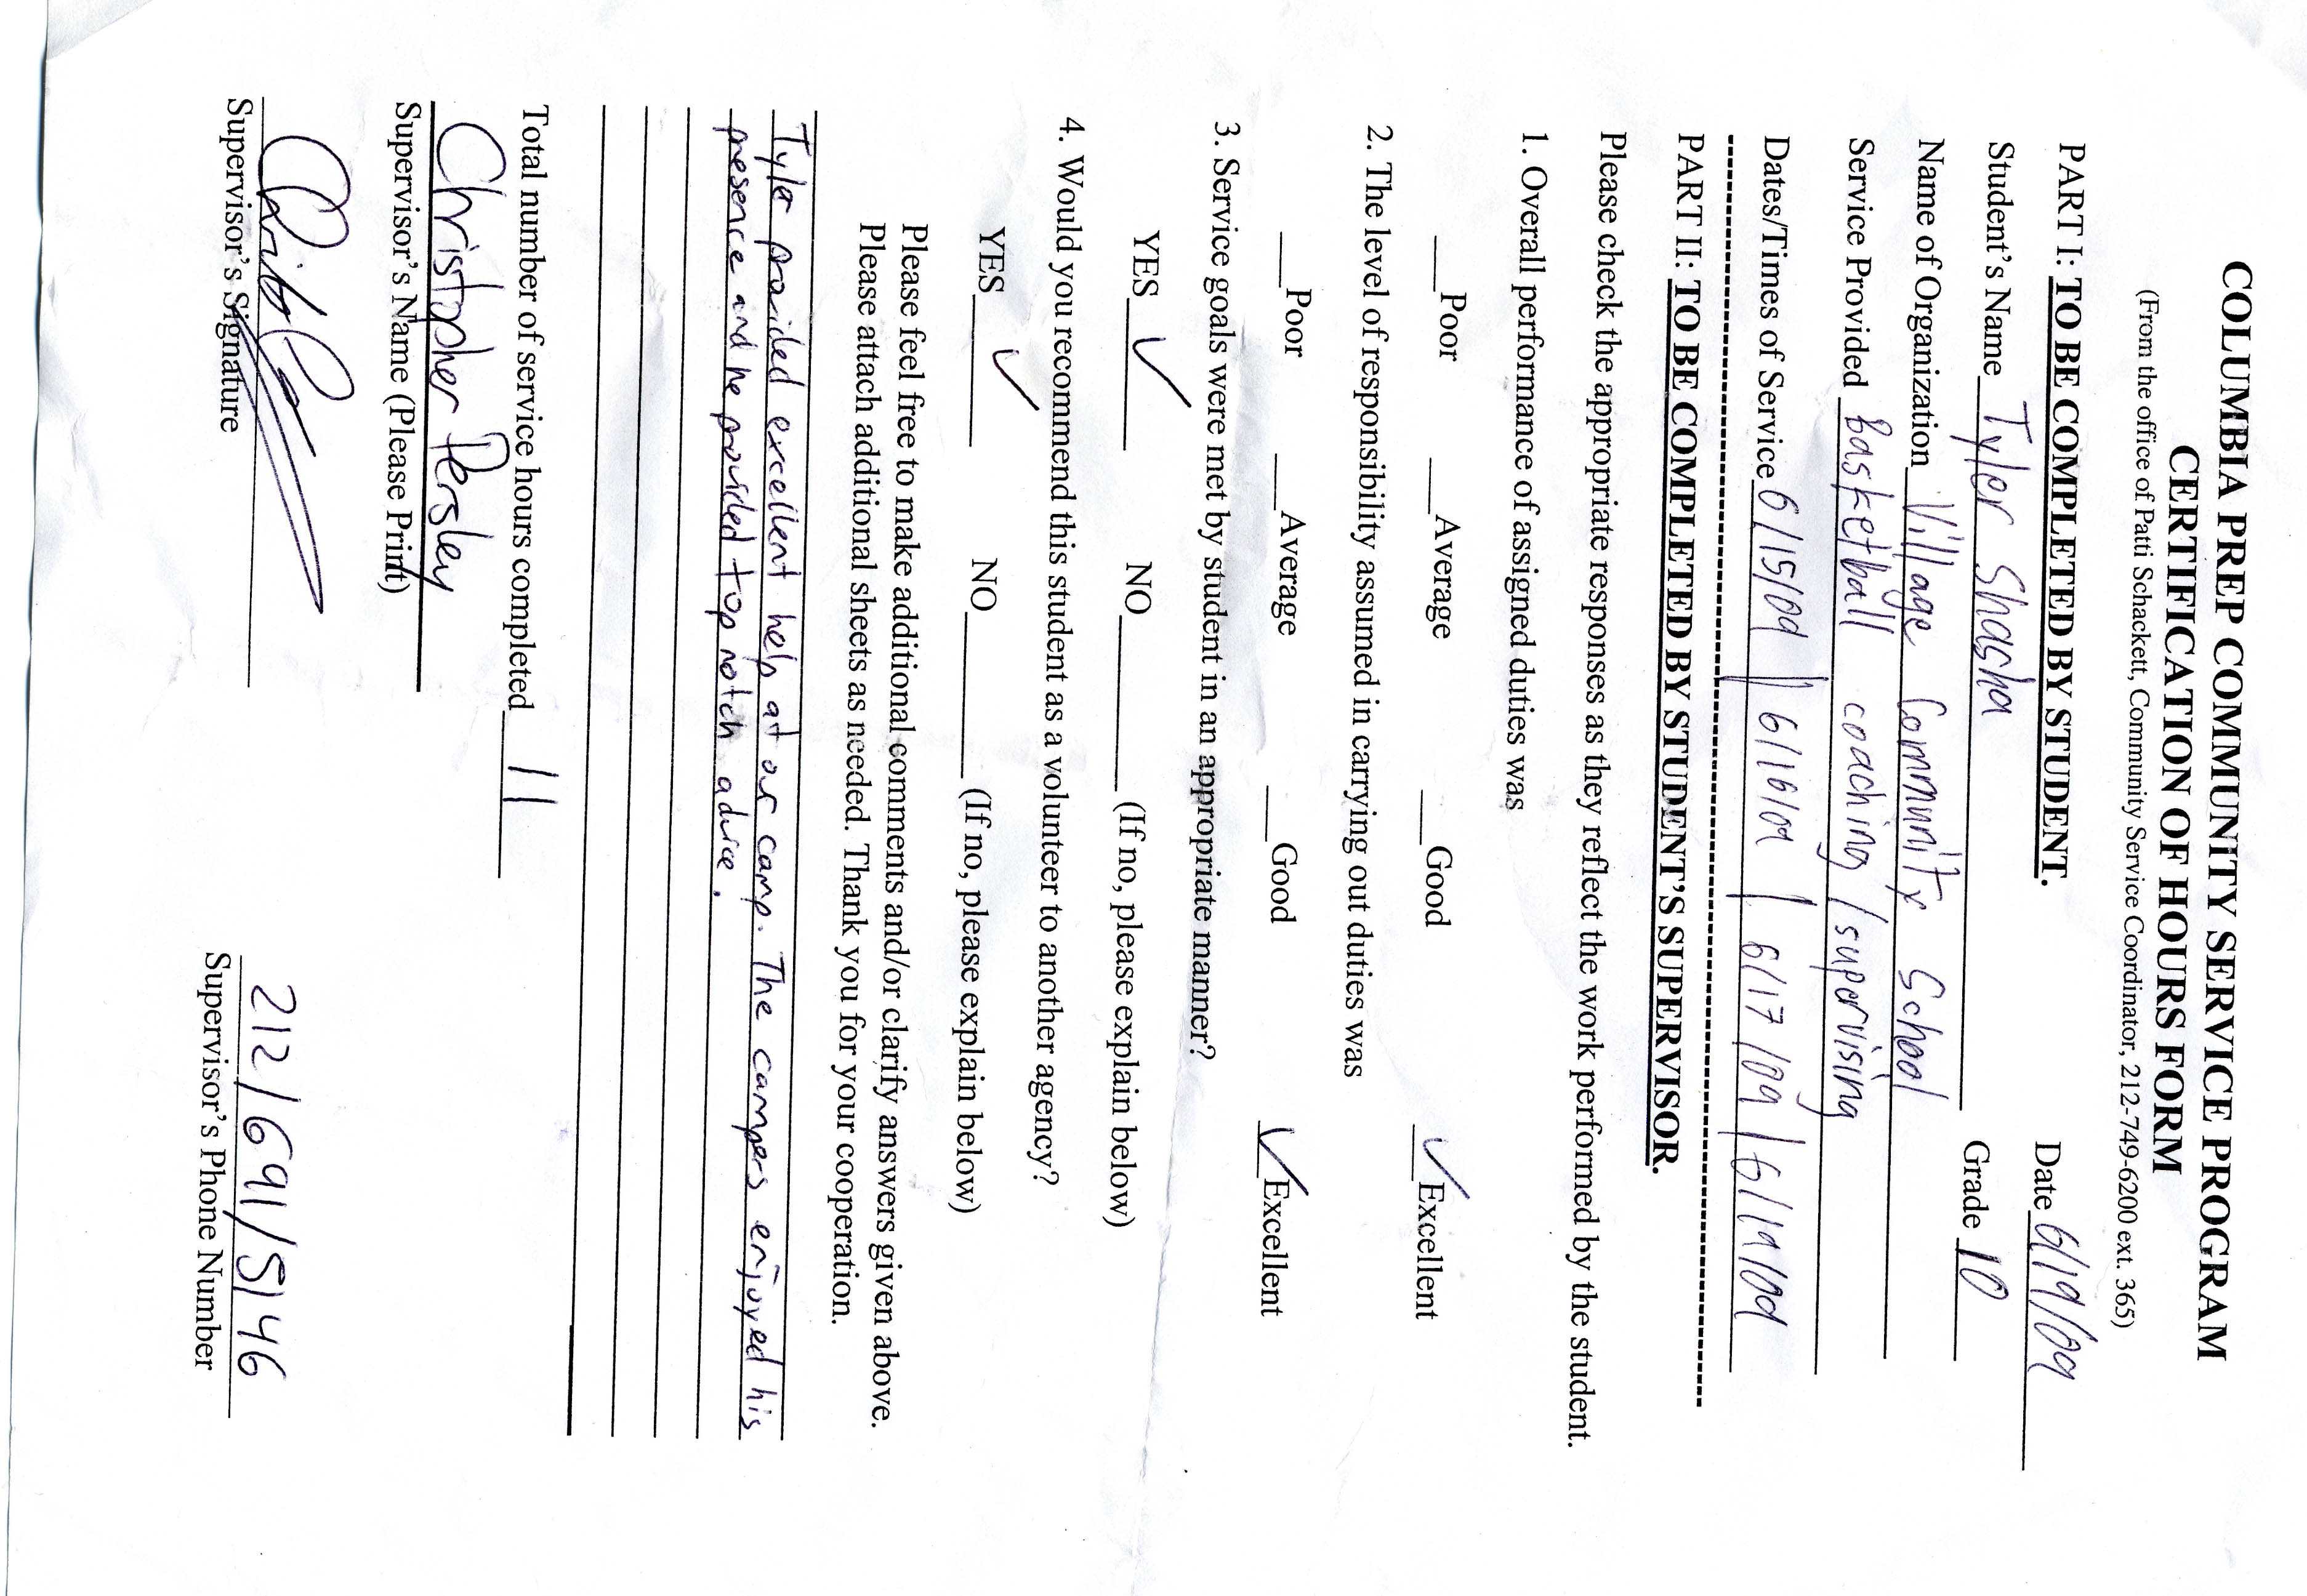 COLUMBIA PREP COMMUNITY SERVICE PROGRAM
CERTIFICATION OF HOURS FORM
(From the office of Patti Schackett, Community Service Coordinator, 212-749-6200 ext. 365)
PART I: TO BE COMPLETED BY STUDENT. Date 6/19/09
Student's Name Tyler Shasha Grade 10
Name of Organization Village Community School
Service Provided Basketball coaching / supervising
Dates/Times of Service 6/15/09 | 6/16/09 | 6/17/09 | 6/19/09
PART II: TO BE COMPLETED BY STUDENT'S SUPERVISOR.
Please check the appropriate responses as they reflect the work performed by the student.
1. Overall performance of assigned duties was
___Poor ___Average ___Good ✓Excellent
2. The level of responsibility assumed in carrying out duties was
___Poor ___Average ___Good ✓Excellent
3. Service goals were met by student in an appropriate manner?
YES ✓ NO ______ (If no, please explain below)
4. Would you recommend this student as a volunteer to another agency?
YES ✓ NO ______ (If no, please explain below)
Please feel free to make additional comments and/or clarify answers given above.
Please attach additional sheets as needed. Thank you for your cooperation.
Tyler provided excellent help at our camp. The campers enjoyed his
presence and he provided top notch advice.
Total number of service hours completed 11
Christopher Persley
Supervisor's Name (Please Print)
212/691/5146
Supervisor's Signature Supervisor's Phone Number